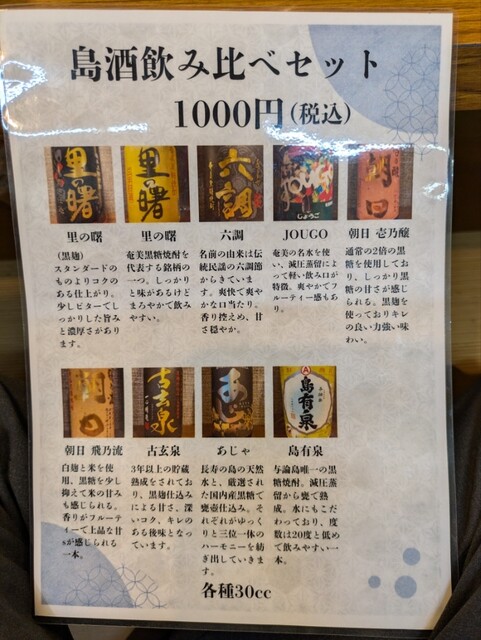 島酒飲み比べセット
1000円(税込)
里の曙
里の曙
六調
jougo
じょうご
朝日
里の曙
(黒麹)
スタンダードの
ものよりコクの
ある仕上がり。
少しビターでし
っかりした旨み
と濃厚さがあり
ます。
里の曙
奄美黒糖焼酎を
代表する銘柄の
一つ。しっかり
と味があるけど
まろやかで飲み
やすい。
六調
名前の由来は伝
統民謡の六調節
からきていま
す。爽快で爽や
かな口当たり。
香り控えめ、甘
さ穏やか。
JOUGO
奄美の名水を使
い、減圧蒸留によ
って軽い飲み口が
特徴。爽やかでフ
ルーティー感もあ
り。
朝日 壱乃醸
通常の2倍の黒
糖を使用してお
り、しっかり黒
糖の甘さが感じ
られる。黒麹を
使っておりキレ
の良い力強い味
わい。
朝日
古玄泉
あじゃ
島有泉
朝日 飛乃流
白麹と米を使
用、黒糖を少し
抑えて米の甘み
も感じられる。
香りがフルーテ
ィーで上品な甘
sが感じられる
一本。
古玄泉
3年以上の貯蔵
熟成をされてお
り、黒麹仕込み
による甘さ、深
いコク、キレの
ある後味となっ
ています。
あじゃ
長寿の島の天然
水と、厳選され
た国内産黒糖で
甕壺仕込み。そ
れぞれがゆっく
りと三位一体の
ハーモニーを紡
ぎ出していきま
す。
島有泉
与論島唯一の黒
糖焼酎。減圧蒸
留から甕で熟
成。水にもこだ
わっており、度
数は20度と低め
で飲みやすい一
本。
各種30cc